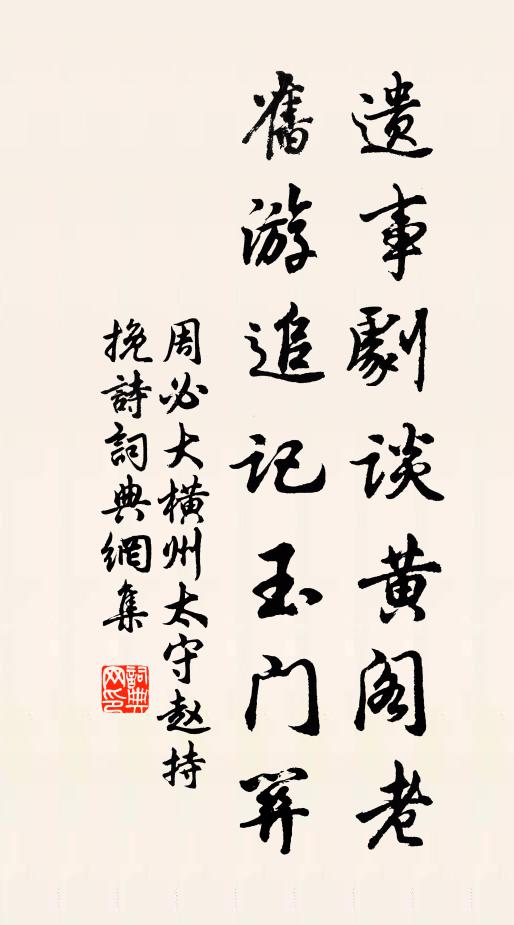 遗事劇谈黄阁老
舊游追记玉门関
周必大横州太守赵持
挽詩詞典網集
詞典网印